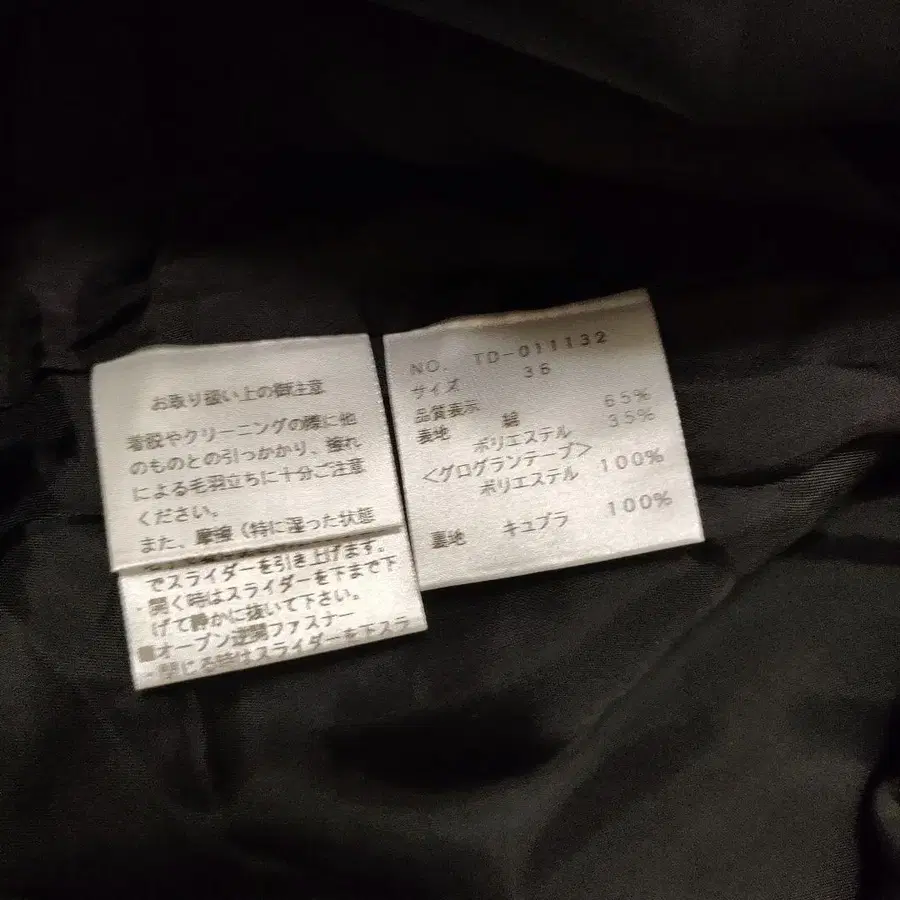 お取り扱い上の御注意
着脱やクリーニングの際に他
のものとの引っかかり、擦れ
による毛羽立ちに十分ご注意
ください。
また、摩擦(特に湿った状態
でスライダーを引き上げます。
・開く時はスライダーを下まで下
げて静かに抜いて下さい。
■オープン逆開ファスナー
・閉じる時はスライダーを下スラ
NO. TD-011132
サイズ 36
品質表示
表地 綿 65%
ポリエステル 35%
<グログランテープ>
ポリエステル 100%
裏地 キュプラ 100%